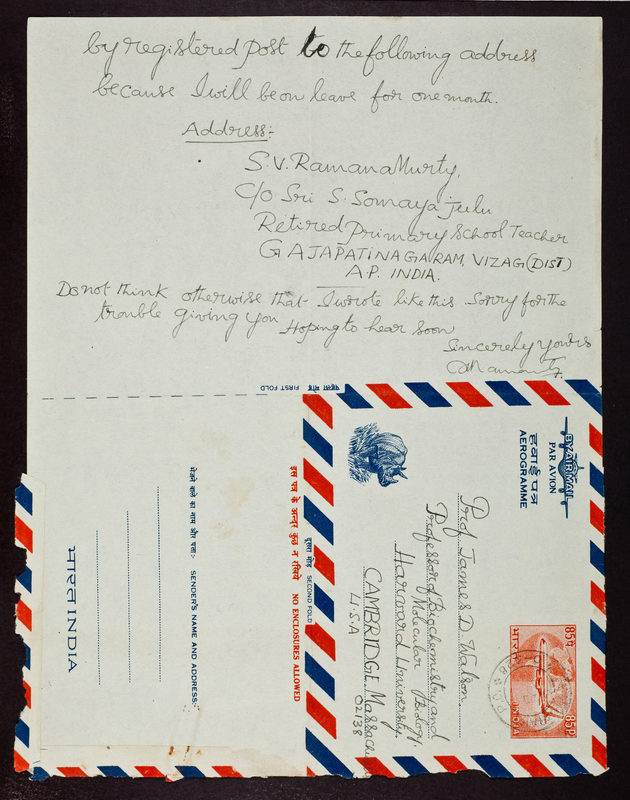 by registered post to the following address
because I will be on leave for one month.
Address:-
S.V. Ramana Murty,
C/o Sri S. Somayajulu
Retired Primary School Teacher
GAJAPATINAGARAM, VIZAG (DIST)
A.P. INDIA.
Do not think otherwise that I wrote like this. Sorry for the
trouble giving you Hoping to hear soon
Sincerely yours
पहला मोड़ FIRST FOLD
BY AIR MAIL
PAR AVION
हवाई पत्र
AEROGRAMME
85 P
भारत
INDIA
85 P
Prof James D. Watson
Professor of Biochemistry and
Molecular Biology,
Harvard University,
CAMBRIDGE, Massachu
U.S.A 02138
दूसरा मोड़ SECOND FOLD
इस पत्र के अन्दर कुछ न रखिये NO ENCLOSURES ALLOWED
भेजने वाले का नाम और पता:- SENDER'S NAME AND ADDRESS:-
भारत INDIA